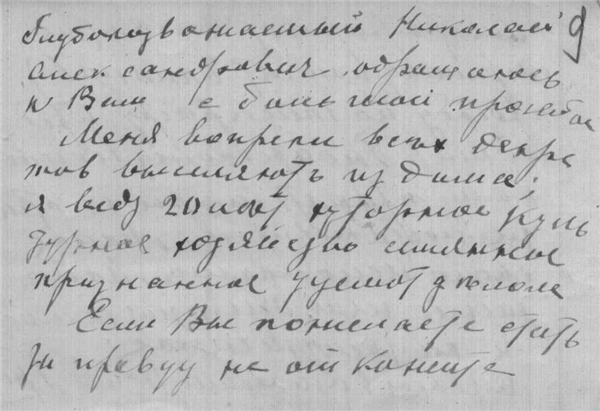 Глубокоуважаемый Николай 9
Александрович обращаюсь
к Вам с большой просьбой
Меня вопреки всех декре
тов выселяють из дома,
я веду 20 лет хуторное куль
турное хозяйство
признанное
Если Вы пожелаете стать
за правду не откажите